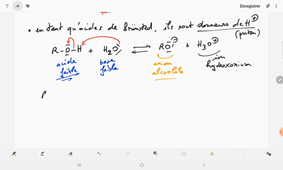 • en tant qu'acides de Brönsted, ils sont donneurs de H⊕
(proton)
R-O-H + H₂O ⇌ RO⊖ + H₃O⊕
acide faible
base faible
anion alcoolate
ion hydroxonium